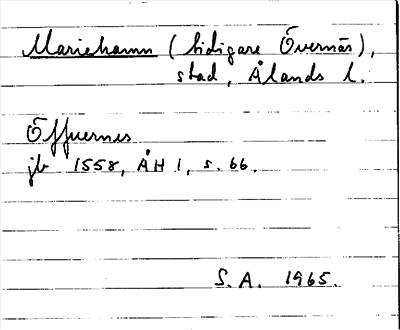 Mariehamn (tidigare Övernäs),
stad, Ålands l.
Öffuernes
jb 1558, ÅH 1, s. 66.
S.A. 1965.